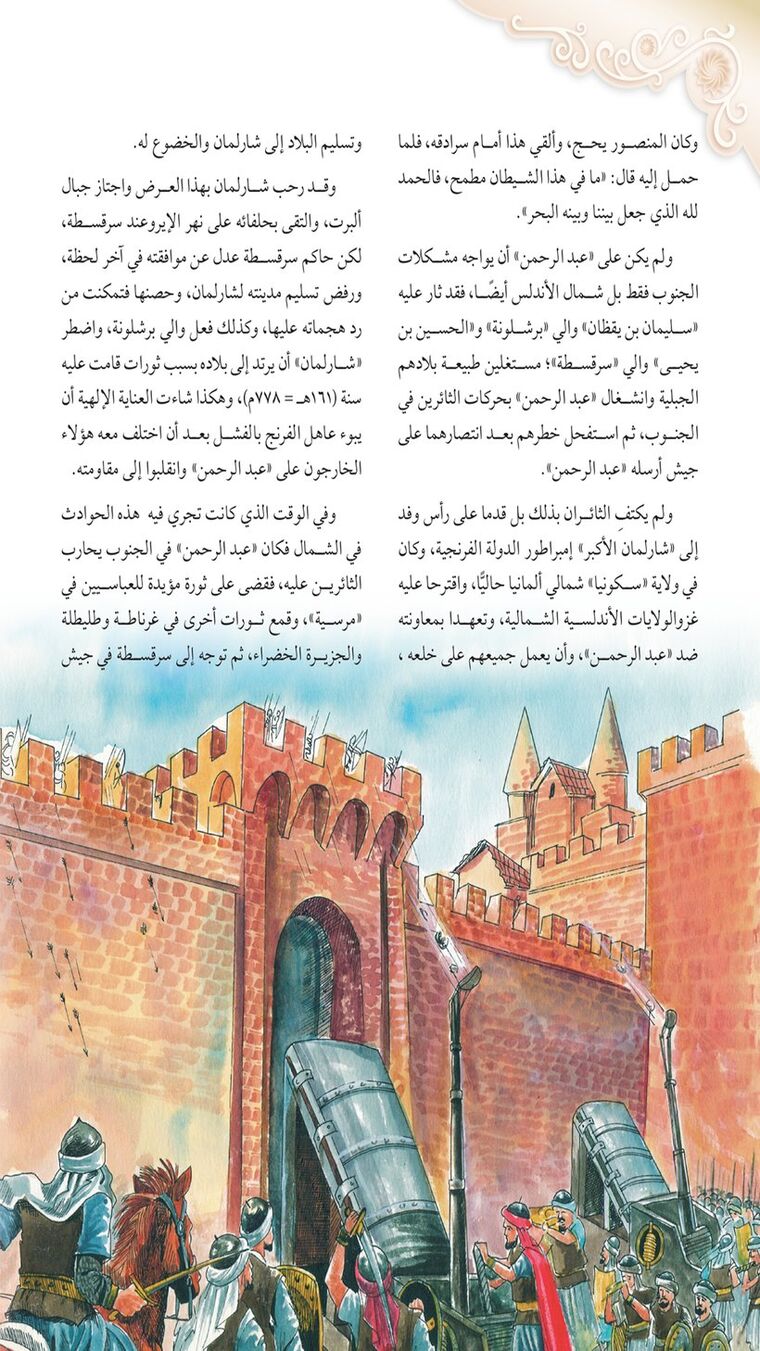 وكان المنصور يحج، وألقي هذا أمام سرادقه، فلما
حمل إليه قال: «ما في هذا الشيطان مطمح، فالحمد
لله الذي جعل بيننا وبينه البحر».
ولم يكن على «عبد الرحمن» أن يواجه مشكلات
الجنوب فقط بل شمال الأندلس أيضًا، فقد ثار عليه
«سليمان بن يقظان» والي «برشلونة» و«الحسين بن
يحيى» والي «سرقسطة»؛ مستغلين طبيعة بلادهم
الجبلية وانشغال «عبد الرحمن» بحركات الثائرين في
الجنوب، ثم استفحل خطرهم بعد انتصارهما على
جيش أرسله «عبد الرحمن».
ولم يكتفِ الثائران بذلك بل قدما على رأس وفد
إلى «شارلمان الأكبر» إمبراطور الدولة الفرنجية، وكان
في ولاية «سكونيا» شمالي ألمانيا حاليًّا، واقترحا عليه
غزوالولايات الأندلسية الشمالية، وتعهدا بمعاونته
ضد «عبد الرحمن»، وأن يعمل جميعهم على خلعه ،
وتسليم البلاد إلى شارلمان والخضوع له.
وقد رحب شارلمان بهذا العرض واجتاز جبال
ألبرت، والتقى بحلفائه على نهر الإيروعند سرقسطة،
لكن حاكم سرقسطة عدل عن موافقته في آخر لحظة،
ورفض تسليم مدينته لشارلمان، وحصنها فتمكنت من
رد هجماته عليها، وكذلك فعل والي برشلونة، واضطر
«شارلمان» أن يرتد إلى بلاده بسبب ثورات قامت عليه
سنة (١٦١هـ = ٧٧٨م)، وهكذا شاءت العناية الإلهية أن
يبوء عاهل الفرنج بالفشل بعد أن اختلف معه هؤلاء
الخارجون على «عبد الرحمن» وانقلبوا إلى مقاومته.
وفي الوقت الذي كانت تجري فيه هذه الحوادث
في الشمال فكان «عبد الرحمن» في الجنوب يحارب
الثائرين عليه، فقضى على ثورة مؤيدة للعباسيين في
«مرسية»، وقمع ثورات أخرى في غرناطة وطليطلة
والجزيرة الخضراء، ثم توجه إلى سرقسطة في جيش